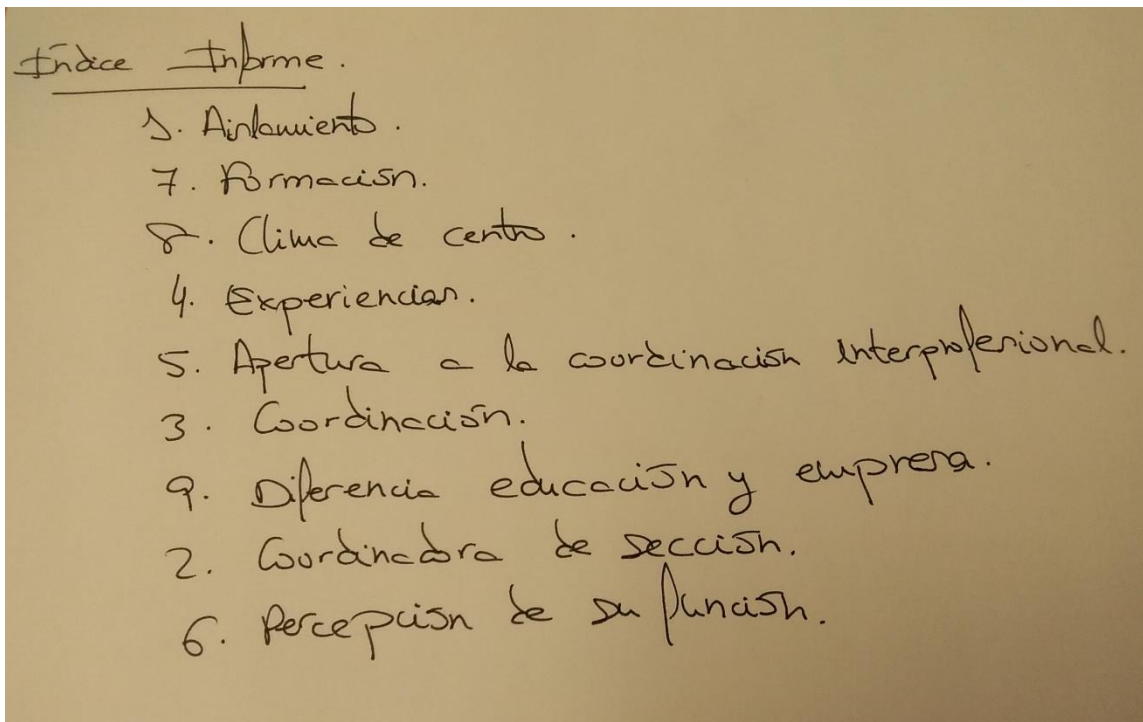 Índice Informe.
1. Aislamiento.
7. Formación.
8. Clima de centro.
4. Experiencias.
5. Apertura a la coordinación interprofesional.
3. Coordinación.
9. Diferencia educación y empresa.
2. Coordinadora de sección.
6. Percepción de su función.